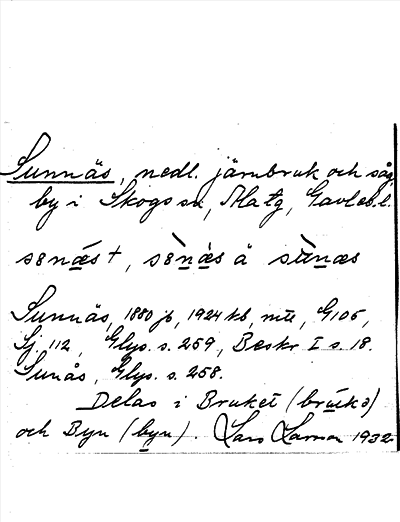 Sunnäs, nedl. järnbruk och såg,
by i Skogs sn, Ala tg, Gävleb. l.
senæs +, sènæ̀s å sùnæs
Sunnäs, 1880 jb, 1924 kb, mtl, G 105,
Sj. 112, Glys. s. 259, Beskr I s. 18.
Sunås, Glys. s. 258.
Delas i Bruket (brúkə)
och Byn (byn). Lars Larson 1932.